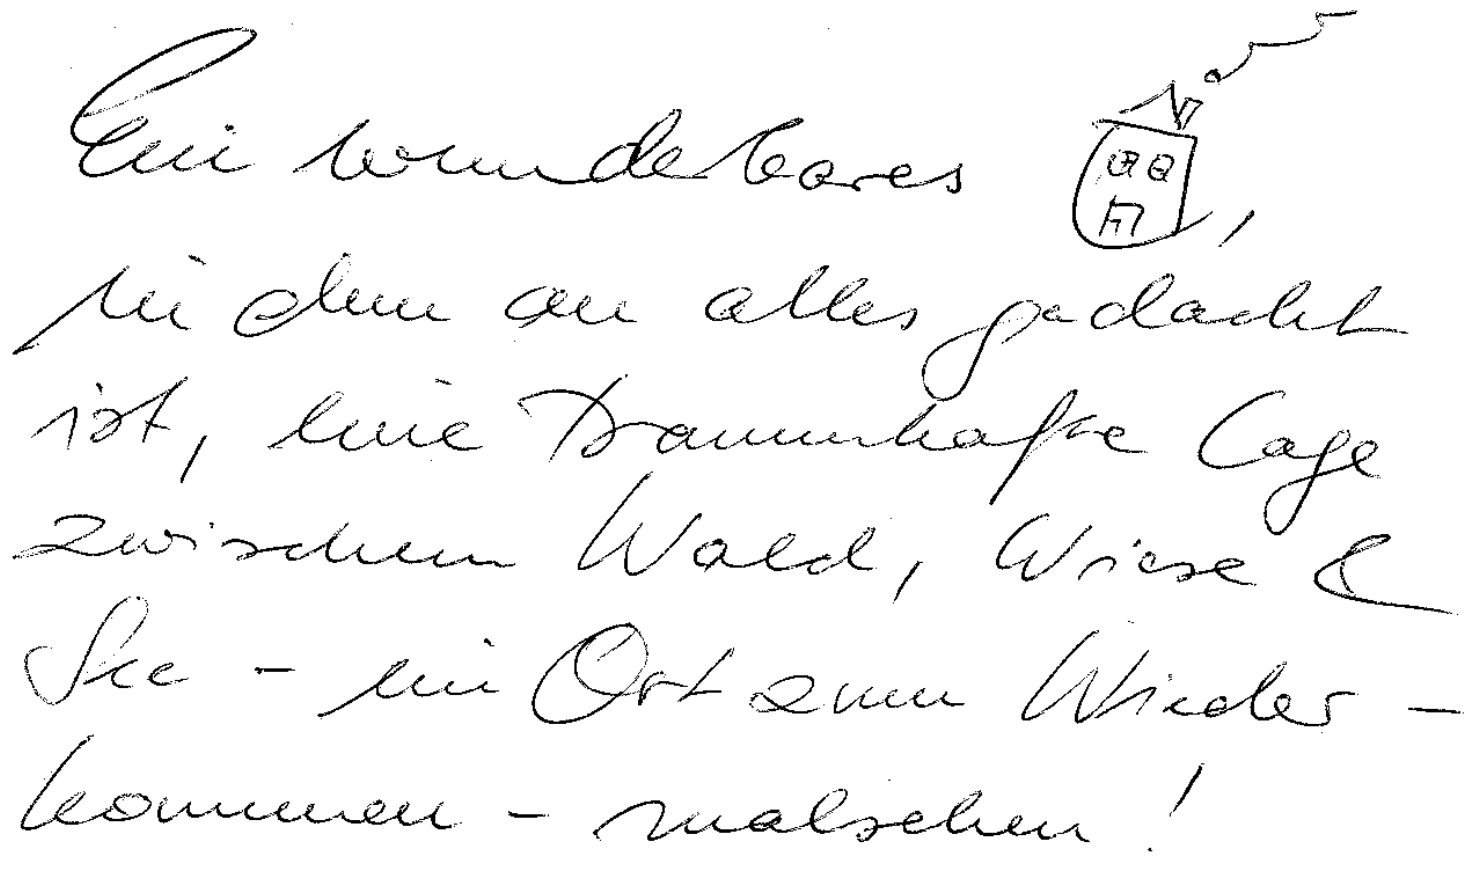 Ein wunderbares ,
in dem an alles gedacht
ist, eine traumhafte Lage
zwischen Wald, Wiese &
See - ein Ort zum Wieder-
kommen - malsehen!